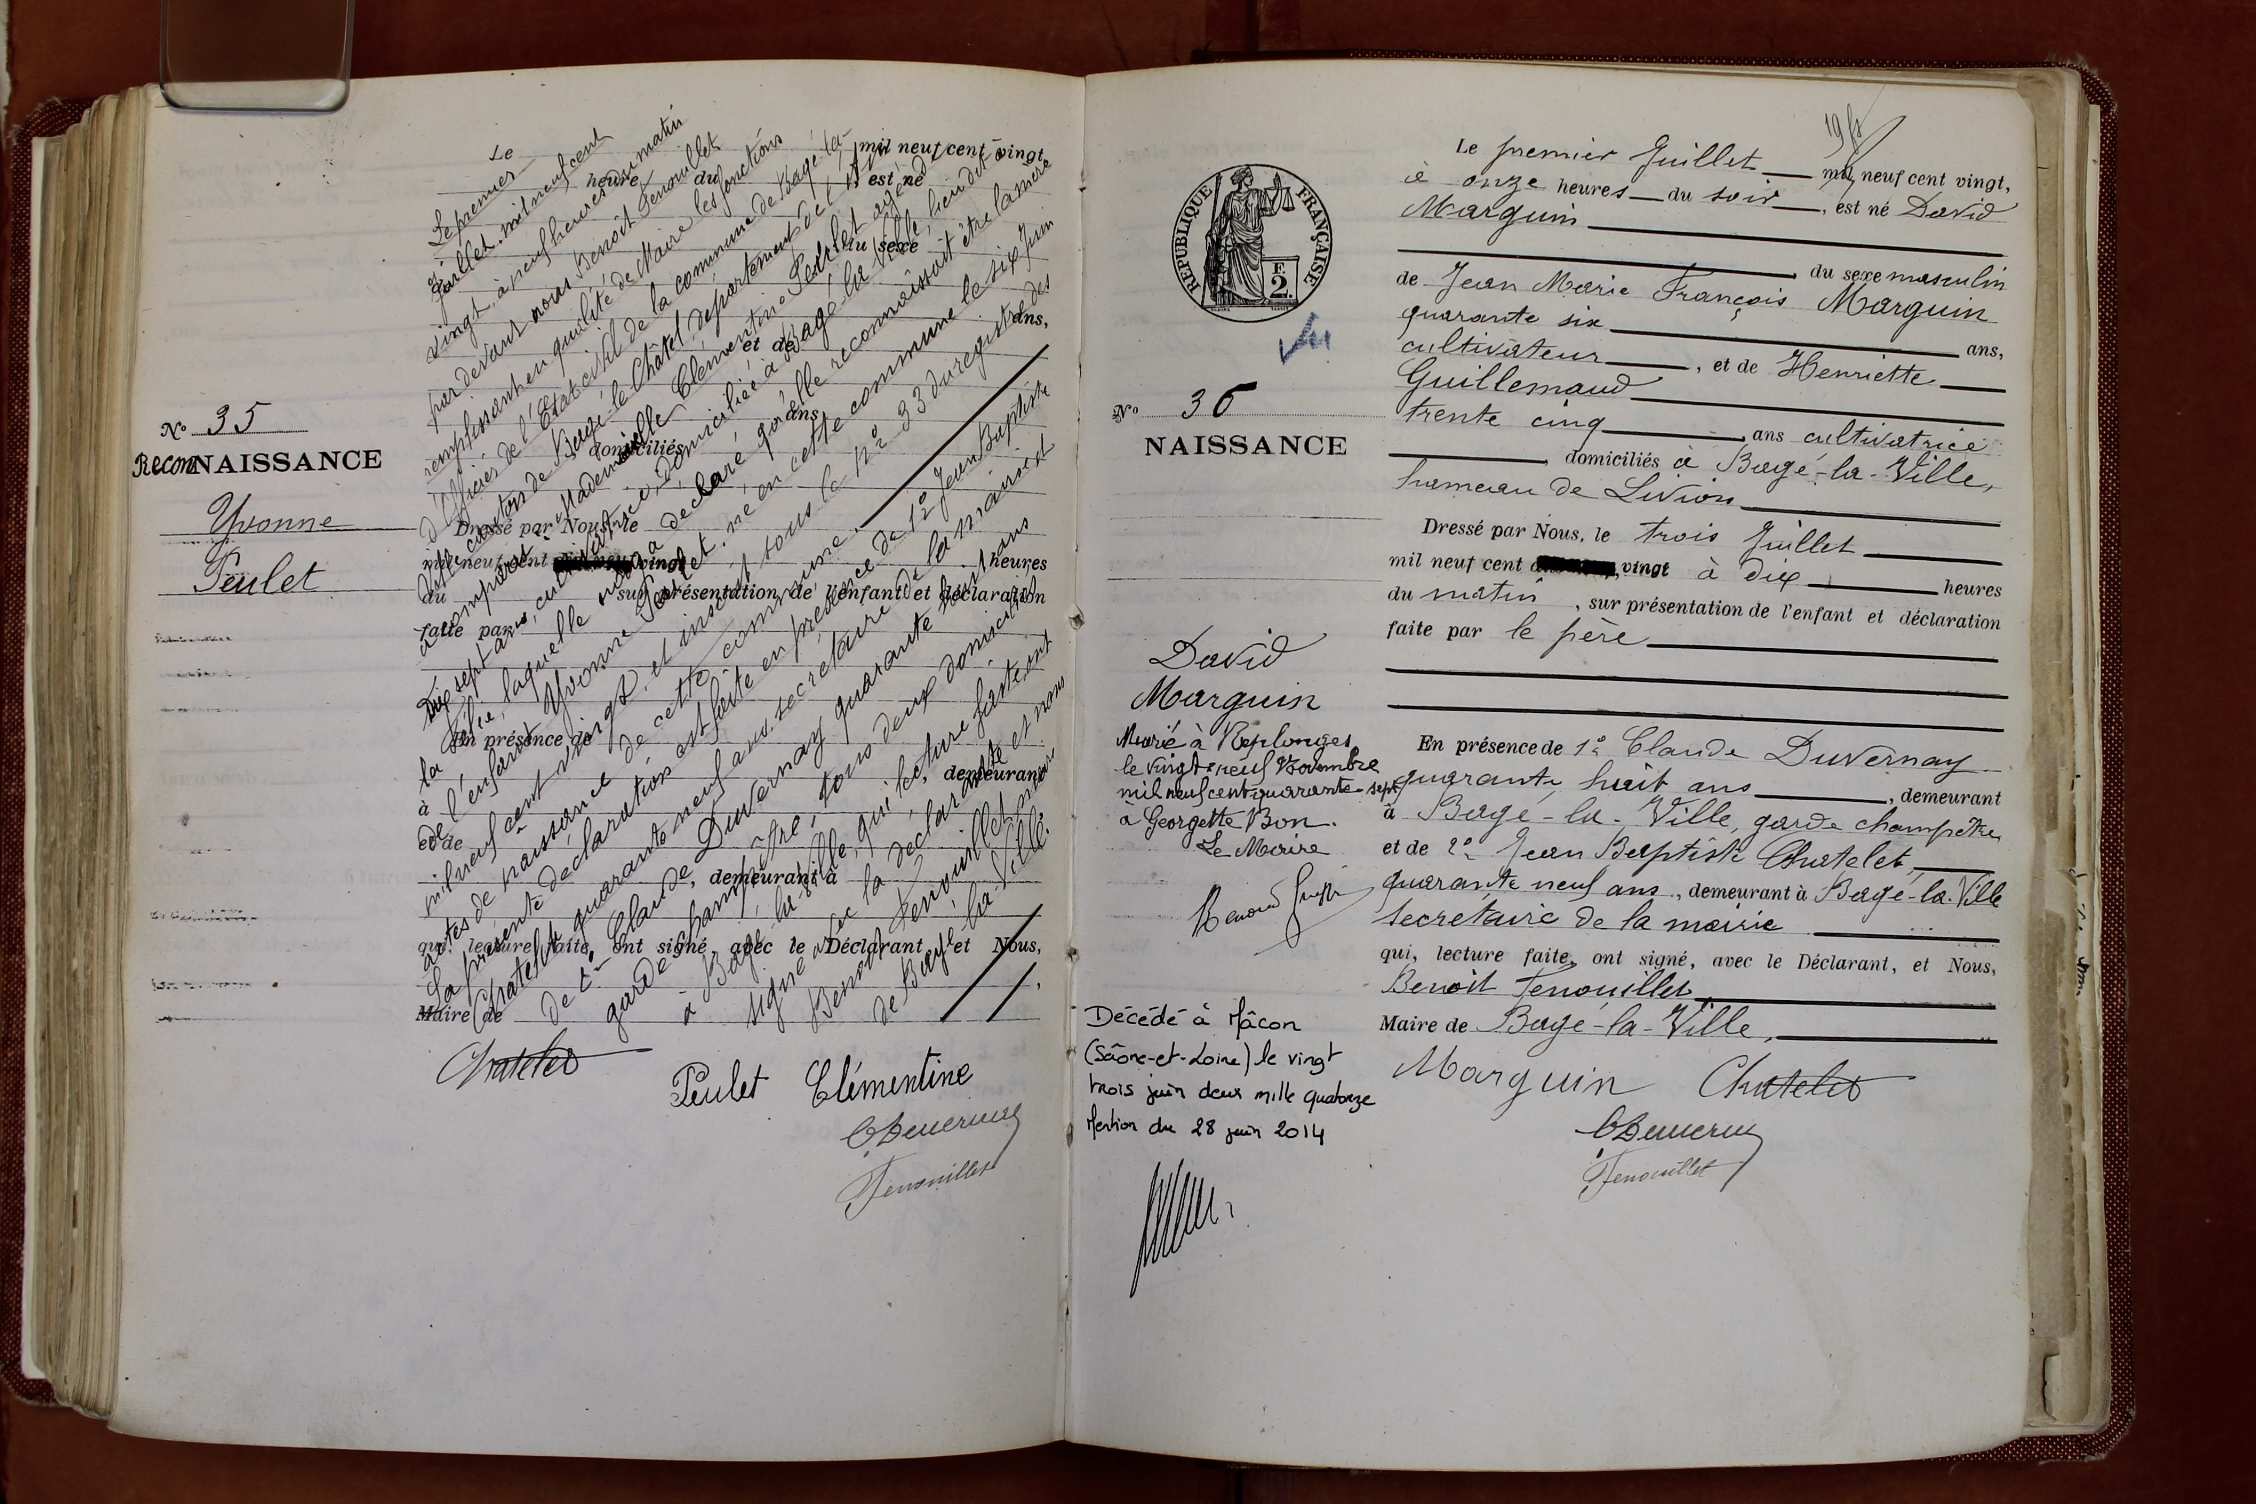 N° 35
ReconNAISSANCE
Yvonne
Peulet
Le
mil neuf cent vingt
heure du
est né
du sexe
ans,
et de
ans
domiciliés
Dressé par Nous, le
mil neuf cent vingt
heures
du sur présentation de l'enfant et déclaration
faite par
En présence de
à , demeurant
et de
, demeurant à
qui, lecture faite, ont signé, avec le Déclarant, et Nous,
Maire de
Le premier
Juillet mil neuf cent
vingt, à neuf heures du matin
par devant nous Benoit Fenouillet
remplissant en qualité de Maire les fonctions
d'Officier de l'Etat civil de la commune de Bagé-la-
Ville canton de Bagé-le-Châtel, département de l'Ain
a comparu Mademoiselle Clémentine Peulet âgée de
Dix sept ans, cultivatrice, domiciliée à Bagé la Ville, lieu dit
laquelle nous a déclaré qu'elle reconnaissait être la mère
de l'enfant Yvonne Peulet, né en cette commune le six Juin
mil neuf cent vingt, et inscrit sous le n° 33 du registre des
actes de naissance de cette commune.
La présente déclaration est faite en présence de 1° Jean Baptiste
Chatelet quarante neuf ans, secrétaire de la mairie et
de 2° Claude Duvernay quarante huit ans
garde champêtre, tous deux domiciliés
à Bagé la Ville, qui, lecture faite, ont
signé avec la déclarante et nous
Benoit Fenouillet maire
de Bagé la Ville.
Chatelet
Peulet Clémentine
C Duvernay
Fenouillet
RÉPUBLIQUE FRANÇAISE
F.
2.
Vu
N° 36
NAISSANCE
David
Marguin
Marié à Replonges
le vingt-neuf Novembre
mil neuf cent quarante-sept
à Georgette Bon.
Le Maire
Décédé à Mâcon
(Saône-et-Loire) le vingt
trois juin deux mille quatorze
Mention du 28 juin 2014
Le premier Juillet mil neuf cent vingt,
à onze heures du soir, est né David
Marguin
du sexe masculin
de Jean Marie François Marguin
quarante six ans,
cultivateur, et de Henriette
Guillemaud
trente cinq ans cultivatrice
domiciliés à Bagé-la-Ville,
hameau de Livion
Dressé par Nous, le trois Juillet
mil neuf cent vingt à dix heures
du matin, sur présentation de l'enfant et déclaration
faite par le père
En présence de 1° Claude Duvernay
quarante huit ans, demeurant
à Bagé-la-Ville, garde champêtre
et de 2° Jean Baptiste Chatelet,
quarante neuf ans, demeurant à Bagé-la-Ville
secrétaire de la mairie
qui, lecture faite, ont signé, avec le Déclarant, et Nous,
Benoit Fenouillet
Maire de Bagé-la-Ville,
Marguin Chatelet
C Duvernay
Fenouillet